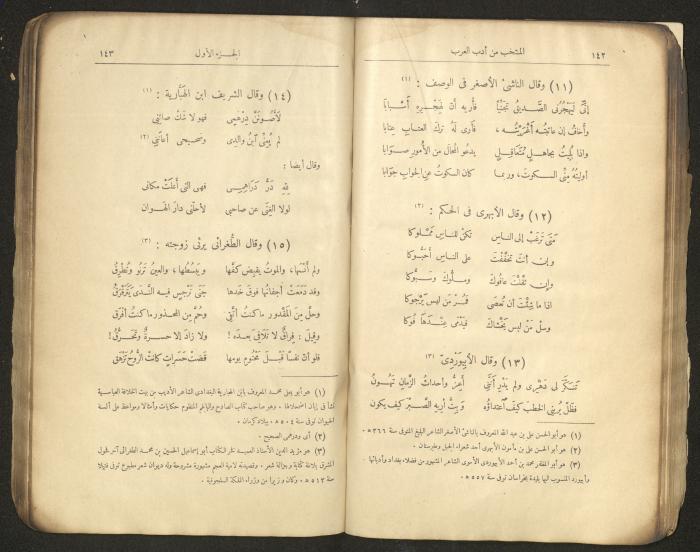 ١٤٢
المنتخب من أدب العرب
(١١) وقال الناشئ الأصغر فى الوصف : (١)
إنى ليهجرنى الصديق تجنبا فأريه أن لهجره أسبابا
وأخاف إن عاتبته أغريته ، فأرى له ترك العتاب عتابا
وإذا بليت بجاهل متغافل يدعو المحال من الأمور صوابا
أوليته منى السكوت ، وربما كان السكوت عن الجواب جوابا
(١٢) وقال الأبهرى فى الحكم : (٢)
متى ترغب إلى الناس تكن للناس مملوكا
وإن أنت تخففت على الناس أحبوكا
وإن ثقلت عافوك وملوك وسبوكا
إذا ما شئت أن تعصى فمر من ليس يرجوكا
وسل من ليس يخشاك فيدمى عندها فوكا
(١٣) وقال الأبيوردى (٣)
تنكر لى دهرى ولم يدر أننى أعز وأحداث الزمان تهون
فظل يرينى الخطب كيف اعتداؤه وبت أريه الصبر كيف يكون
(١) هو أبو الحسن على بن عبد الله المعروف بالناشئ الأصغر الشاعر البليغ المتوفى سنة ٣٦٦ ه .
(٢) هو أبو الحسن على بن مأمون الأبهرى أحد شعراء الجبل وطبرستان .
(٣) هو أبو المظفر محمد بن أحمد الأبيوردى الأموى الشاعر المشهور من فضلاء بغداد وأدبائها .
وأبيورد المنسوب إليها بليدة بخراسان توفى سنة ٥٥٧ ه .
الجزء الأول
١٤٣
(١٤) وقال الشريف ابن الهبارية : (١)
لأصونن درهمى فهو لا شك صائنى
لم يعنى ابن والدى وصحيحى أعاننى (٢)
وقال أيضا :
لله در دراهمى فهى التى أعلت مكانى
لولا الغنى عن صاحبى لأحلنى دار الهوان
(١٥) وقال الطغرائى يرثى زوجته : (٣)
ولم أنسها ، والموت يقبض كفها ويبسطها ، والعين ترنو وتطرق
وقد دمعت أجفانها فوق خدها جنى نرجس فيه الندى يترقرق
وحل من المقدور ما كنت أتقى وحم من المحذور ما كنت أفرق
وقيل : فراق لا تلاقى بعده ! ولا زاد إلا حسرة وتحرق !
فلو أن نفسا قبل محتوم يومها قضت حسرات كانت الروح تزهق
(١) هو أبو يعلى محمد المعروف بابن الهبارية البغدادى الشاعر الأديب من بيت الخلافة العباسية
نشأ فى إبان اضمحلالها . وهو صاحب كتاب الصادح والباغم المنظوم حكايات وأمثالا ومواعظ على ألسنة
الحيوان توفى سنة ٥٠٤ ه ببلاد كرمان .
(٢) أى ودرهمى الصحيح .
(٣) هو مؤيد الدين الأستاذ العميد نفر الكتاب أبو إسماعيل الحسين بن محمد الطغرائى آخر فحول
المشرق بلاغة كتابة وجزالة شعر . وقصيدته لامية العجم مشهورة مشروحة وله ديوان شعر مطبوع توفى قتيلا
سنة ٥١٣ ه . وكان وزيرا من وزراء المملكة السلجوقية .